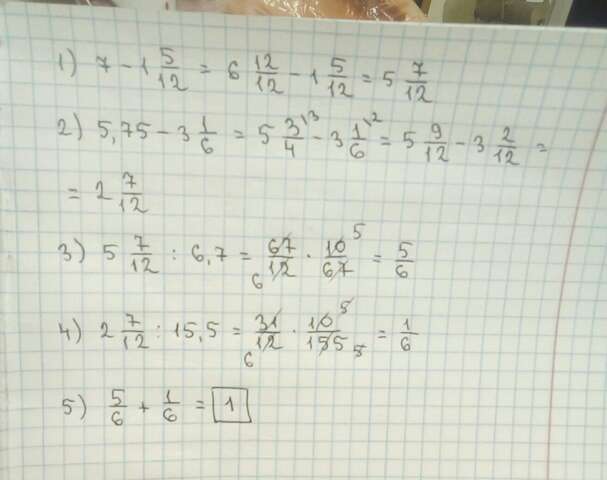 1) 7 - 1 5/12 = 6 12/12 - 1 5/12 = 5 7/12
2) 5,75 - 3 1/6 = 5 3/4 \3 - 3 1/6 \2 = 5 9/12 - 3 2/12 =
= 2 7/12
3) 5 7/12 : 6,7 = 67/12 6 · 10/67 5 = 5/6
4) 2 7/12 : 15,5 = 31/12 6 · 10/155 5 5 = 1/6
5) 5/6 + 1/6 = 1